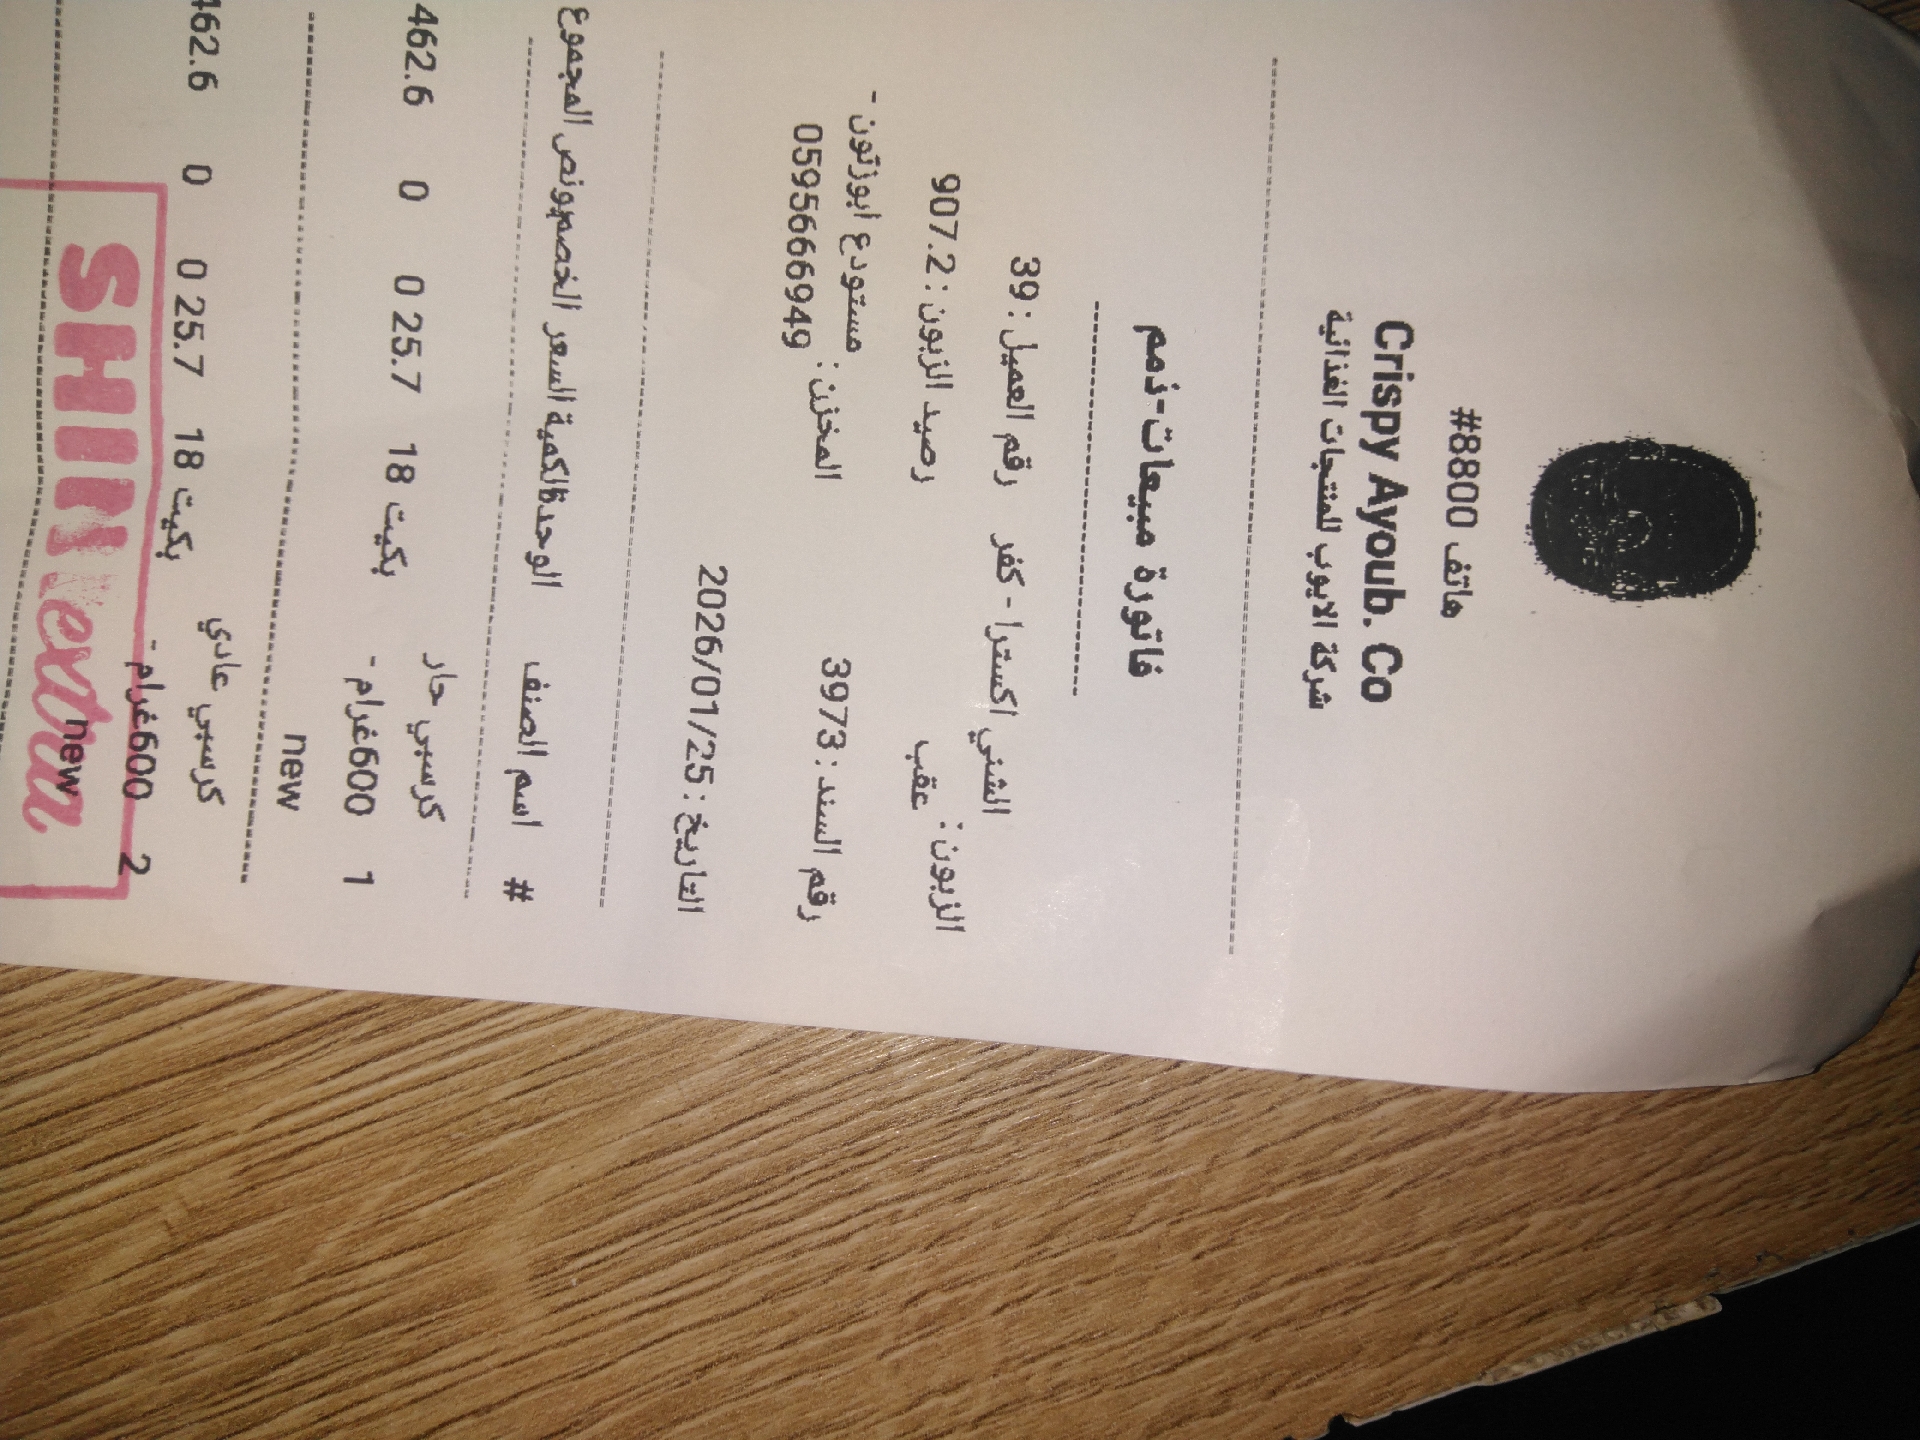 هاتف 8800#
Crispy Ayoub. Co
شركة الايوب للمنتجات الغذائية
فاتورة مبيعات-ذمم
الزبون: الشني اكسترا - كفر عقب
رقم العميل: 39
رصيد الزبون: 907.2
رقم السند: 3973
المخزن: مستودع ابوزتون - 0595666949
التاريخ: 2026/01/25
# اسم الصنف الوحدة الكمية السعر الخصم بونص المجموع
1 كرسبي حار 600غرام - new بكيت 18 25.7 0 0 462.6
2 كرسبي عادي 600غرام - new بكيت 18 25.7 0 0 462.6
SHINI extra